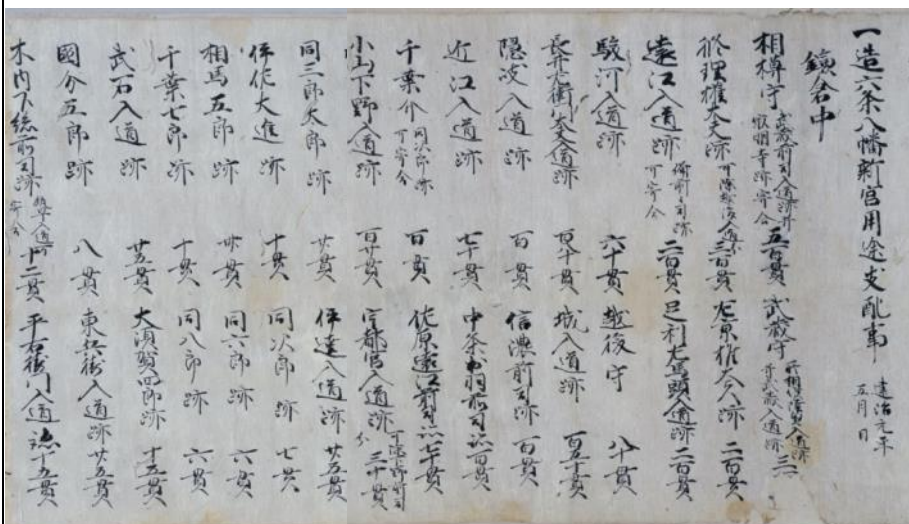 一造六条八幡新宮用途支配事 建治元年 五月 日
鎌倉中
相模守 武蔵前司入道跡并 最明寺跡寄合 五百貫 武蔵守
修理権大夫跡 三百貫 左京権大夫跡 二百貫
遠江入道跡 備前々司跡 可寄合 二百貫 足利左馬頭入道跡 二百貫
駿河入道跡 六十貫 越後守 八十貫
長井左衛門大夫入道跡 城入道跡 百五十貫
隠岐入道跡 百貫 信濃前司跡 百貫
近江入道跡 七十貫 中条出羽前司跡 百貫
千葉介 同次郎跡 可寄合 百貫 佐原遠江前司跡 七十貫
小山下野入道跡 百廿貫 宇都宮入道跡 三十貫
同三郎太郎跡 廿貫 伊達入道跡 廿五貫
伊佐大進跡 十貫 同次郎跡 七貫
相馬五郎跡 廿貫 同六郎跡 六貫
千葉七郎跡 十貫 同八郎跡 六貫
武石入道跡 廿五貫 大須賀四郎跡 十五貫
國分五郎跡 八貫 東兵衛入道跡 廿五貫
木内下総前司跡 十二貫 平右衛門入道跡 十五貫